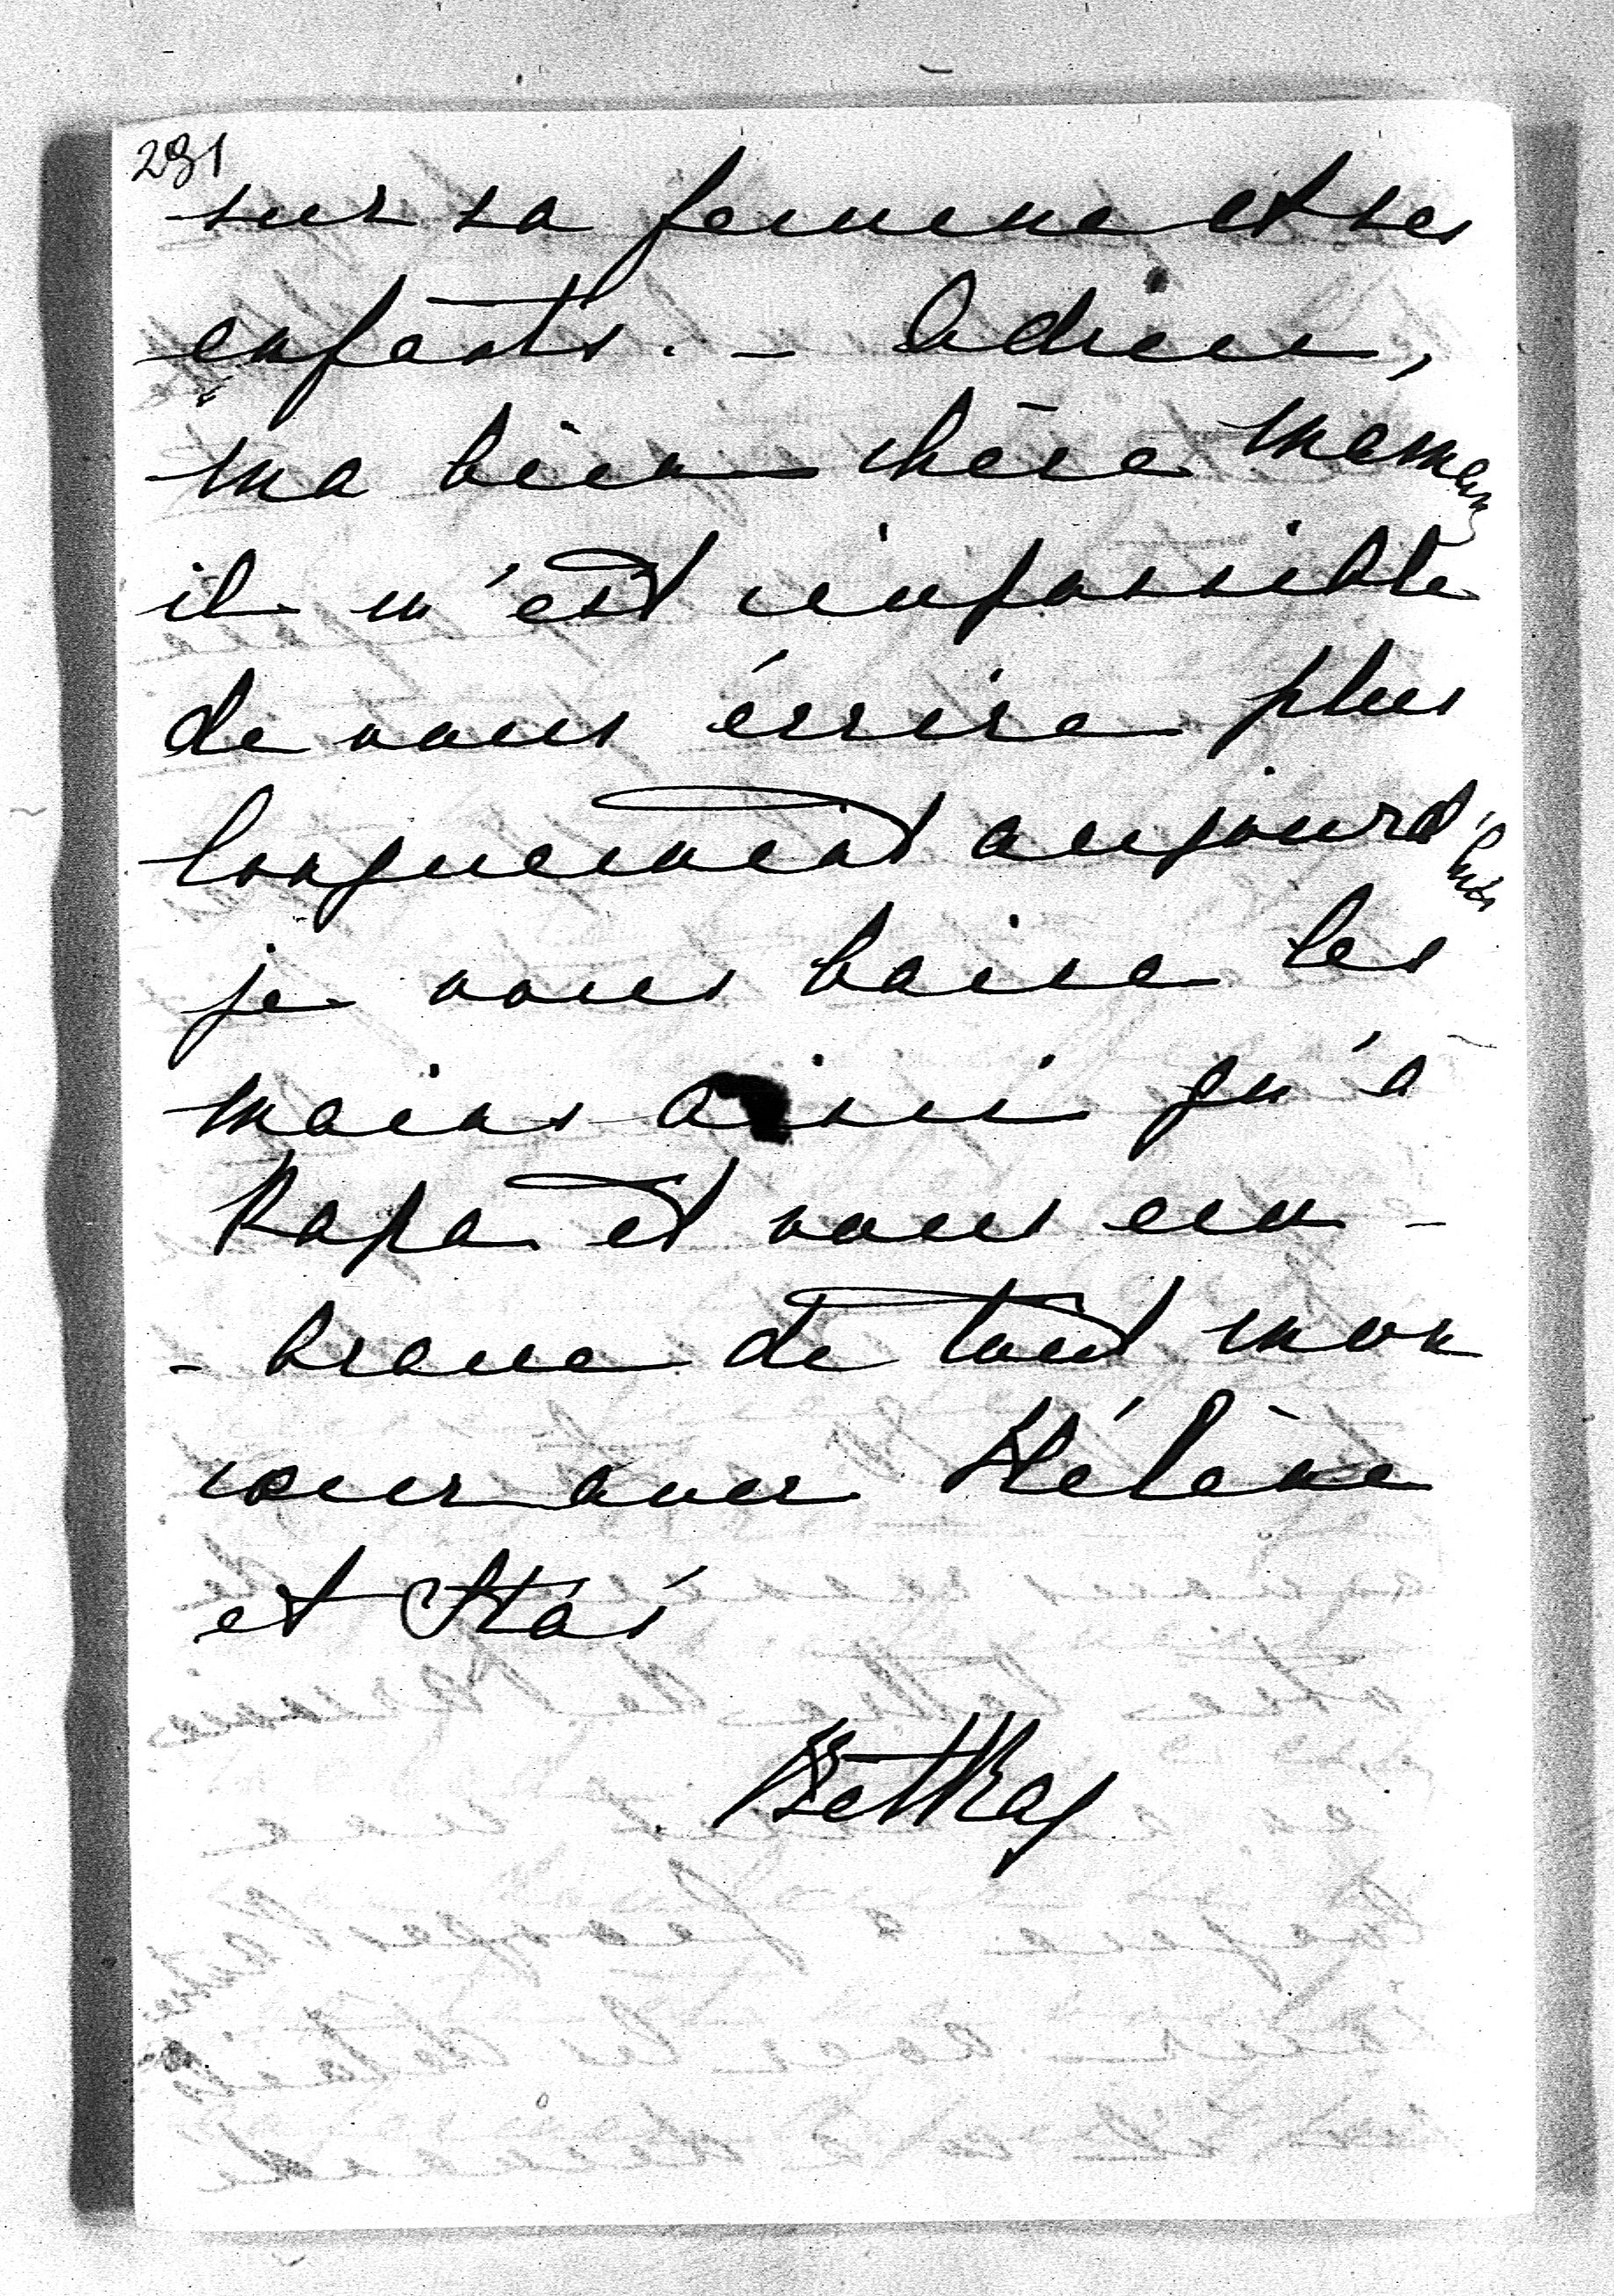 231
sur sa femme et ses
enfants. - Adieu,
ma bien chère maman
il m'est impossible
de vous écrire plus
longuement aujourd'hui
je vous baise les
mains ainsi qu'à
Papa et vous em-
-brasse de tout mon
cœur avec Hélène
et Staś